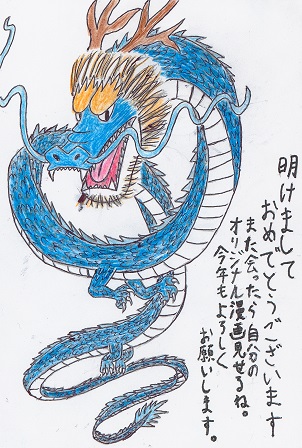 明けまして
おめでとうございます
また会ったら自分の
オリジナル漫画見せるね。
今年もよろしく
お願いします。